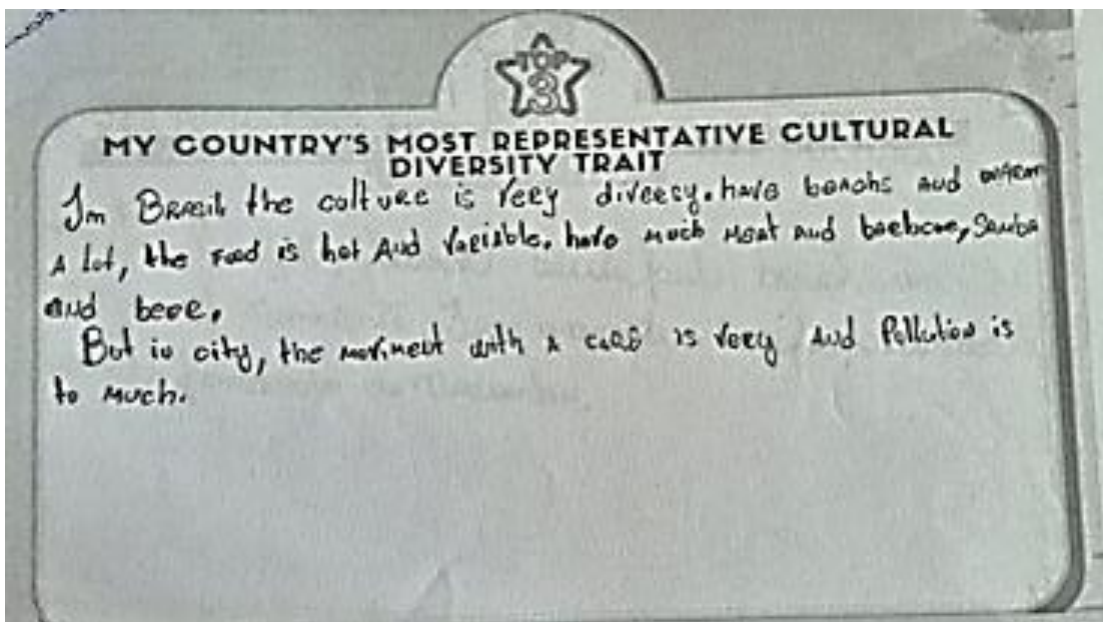 TOP
3
MY COUNTRY'S MOST REPRESENTATIVE CULTURAL
DIVERSITY TRAIT
Im BRASIL the culture is very diversy. have beachs and
A lot, the food is hot And Variable. have much meat and barbecue, Samba
and beer.
But in city, the moviment with a cars is very And Pollution is
to much.